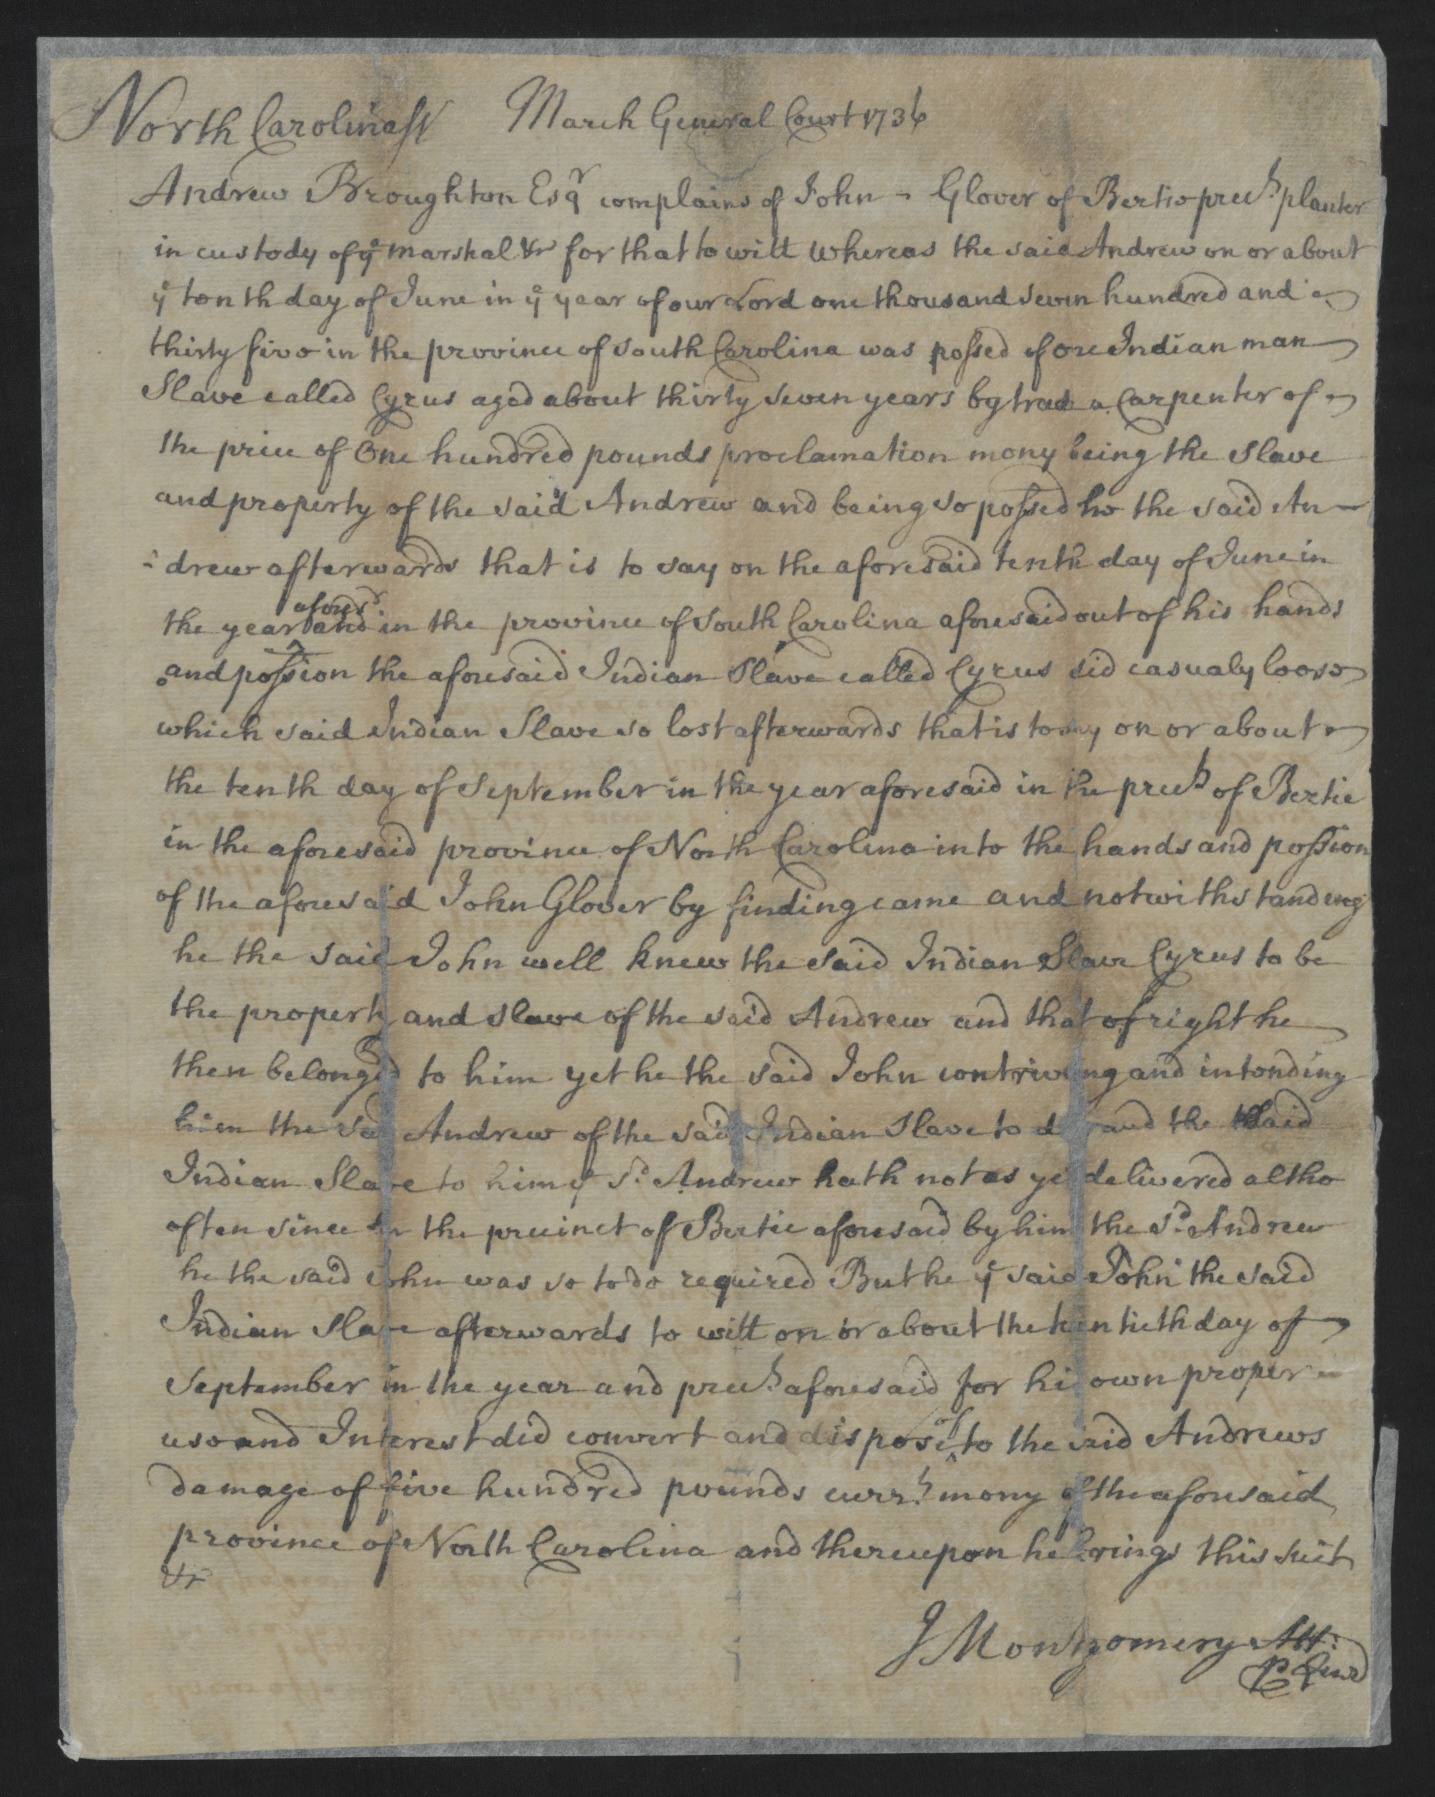 North Carolina ss March General Court 1736
Andrew Broughton Esqr complains of John - Glover of Bertie prect planter
in custody of ye Marshal &c for that to witt whereas the said Andrew on or about
ye tenth day of June in ye year of our Lord one thousand seven hundred and
thirty five in the province of South Carolina was possed of one Indian man
Slave called Cyrus aged about thirty seven years by trade a Carpenter of
the price of One hundred pounds proclamation mony being the Slave
and property of the said Andrew and being so possed he the said An-
-drew afterwards that is to say on the aforesaid tenth day of June in
the year aforesd and in the province of South Carolina aforesaid out of his hands
and possion the aforesaid Indian Slave called Cyrus did casualy loose
which said Indian Slave so lost afterwards that is to say on or about
the tenth day of September in the year aforesaid in the prect of Bertie
in the aforesaid province of North Carolina into the hands and possion
of the aforesaid John Glover by finding came and notwithstanding
he the said John well knew the said Indian Slave Cyrus to be
the property and slave of the said Andrew and that of right he
then belonged to him yet he the said John contriving and intending
him the said Andrew of the said Indian Slave to and the said
Indian Slave to him ye sd Andrew hath not as yet delivered altho
often since in the precinct of Bertie aforesaid by him the sd Andrew
he the said John was so to do required But he ye said John the said
Indian Slave afterwards to witt on or about the day of
September in the year and prect aforesaid for his own proper
use and Interest did convert and dispose of to the said Andrews
damage of five hundred pounds currt mony of the aforesaid
province of North Carolina and thereupon he brings this suit
&c
J Montgomery Att: